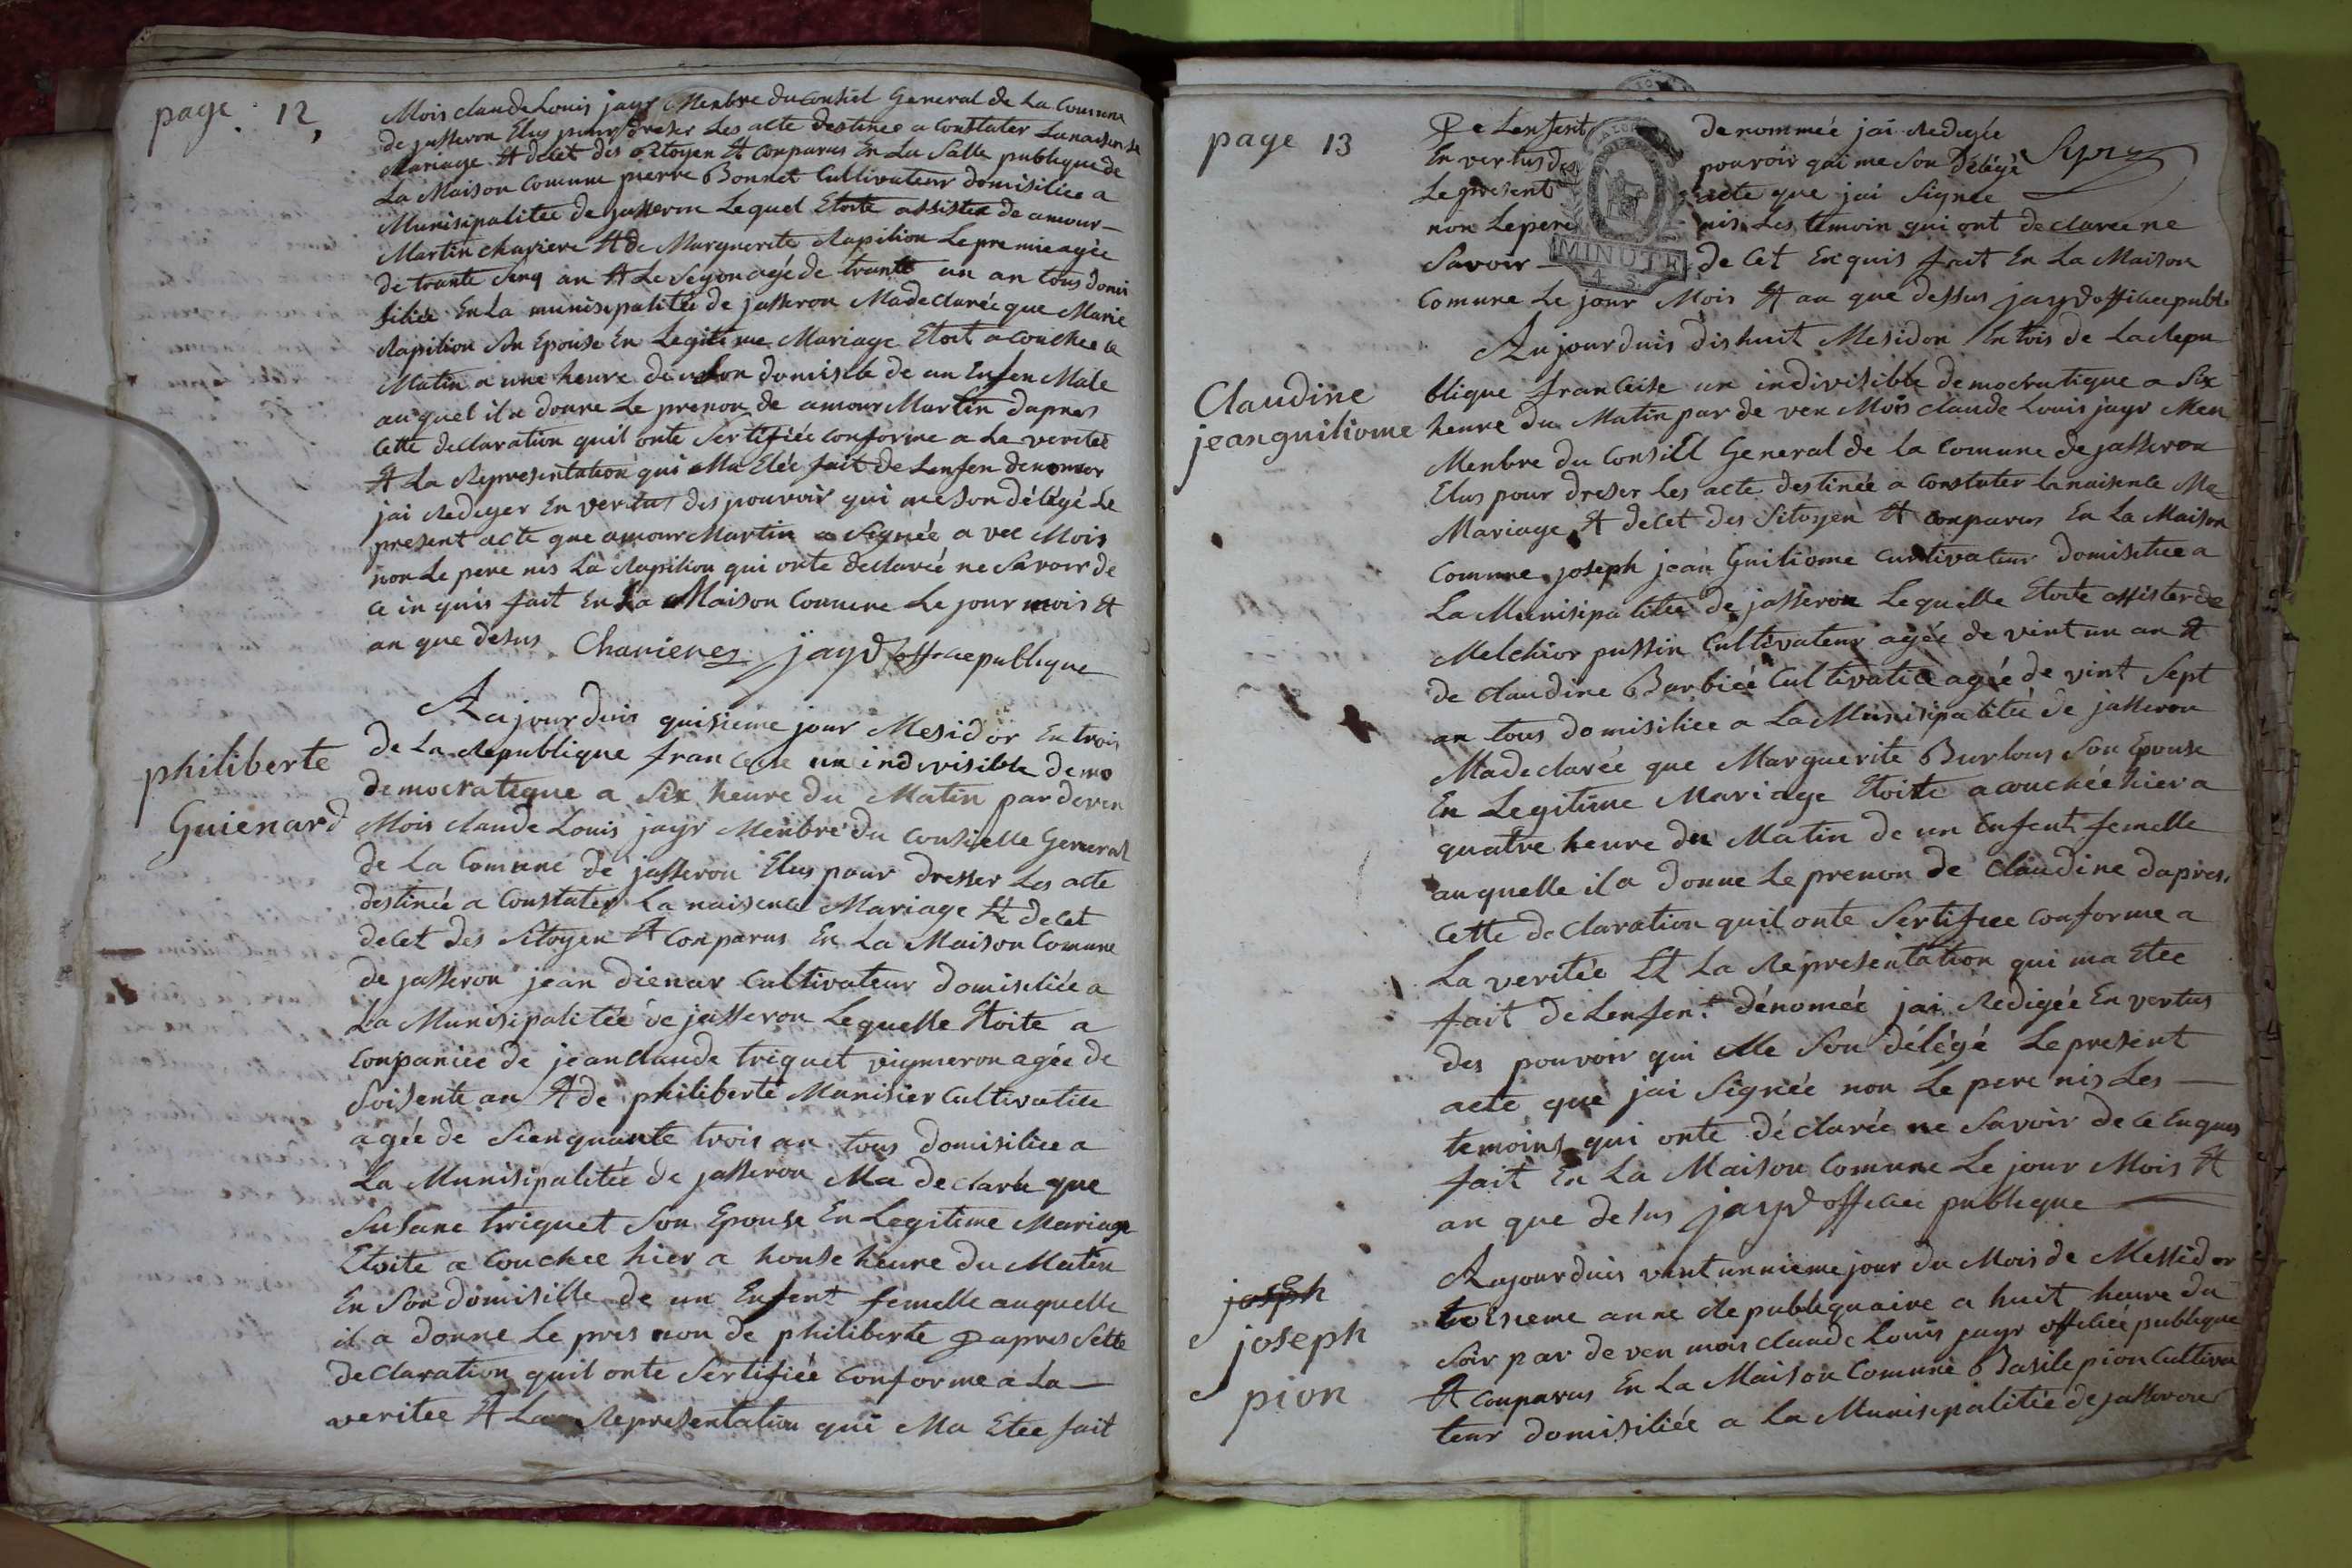 page 12,
Mois claude Louis jayr Menbre du Consiel General de La Comune
de jasseron Elus pour dreser Les acte destinee a Constater La naisense
Mariage Et decet des Sitoyen Et Conparus En La Salle publique de
La Maison Comune pierre Bonnet Cultivateur domisiliee a
Munisipalitee de jasseron Lequel Etoite assistee de amour
Martin chariere Et de Marguerite Rapilion Le premie agée
de trante Sinq an Et Le Segon agé de trante un an tous domi
siliée En La munisipalitée de jasseron Ma declarée que Marie
Rapilion Son Epouse En Legitime Mariage Etoit acouchee ce
Matin a une heure de en son domisile de un Enfen Male
auquel il a donne Le prenon de amour Martin dapres
Cette declaration quil onte Sertifiée Conforme a La veritée
Et La Representation qui Ma Etée fait de Lenfen denomer
jai Rediger En vertus des pouvoir qui me son délégé Le
present acte que amour Martin a Signée a vec Mois
non Le pere nis La Rapilion qui onte declareé ne Savoir de
ce in quis fait En La Maison Comune Le jour mois Et
an que desus Charieres jayr office publique
philiberte
Guienard
Aujourduis quisieme jour Mesidor En trois
de La Republique francese un indivisible demo
democratique a Six heure du Matin par deven
Mois claude Louis jayr Menbre du Consielle General
de La Comune de jasseron Elus pour dresser Les acte
destinée a Constater La naisence Mariage Et decet
decet des Sitoyen Et Conparus En La Maison Comune
de jasseron jean Dienar Cultivateur domisiliée a
La Munisipalitée de jasseron Lequelle Etoite a
Conpaniée de jean claude triquet vigneron agée de
Soisente an Et de philiberte Munisier Cultivatice
agée de Sienquante trois an tous domisiliee a
La Munisipalitée de jasseron Ma declarée que
Susane triquet Son Epouse En Legitime Mariage
Etoite a Couchee hier a honse heure du Matin
En Son domisille de un Enfent femelle auquelle
il a donne Le pres non de philiberte dapres Sette
declaration quil onte Sertifiée Conforme a La
veritee Et La Representation qui Ma Etee fait
page 13
De Lenfent denommée jai Redigée
En vertus des pouvoir qui me Son Délégé
Le present acte que jai Signee
non Le pere nis Les temoin qui ont declaree ne
Savoir de Cet Enquis fait En La Maison
Comune Le jour Mois Et an que dessus jayr office publ
MINUTE
4. S.
Claudine
jeanguiliome
Aujourduis dishuit Mesidor En tois de La Repu
blique francaise un indivisible democratique a Six
heure du Matin par de ven Mois claude Louis jayr Men
Menbre du Consill General de La Comune de jasseron
Elus pour dreser Les acte destinée a Constater La naisence Ma
Mariage Et decet des Sitoyen Et Conparus En La Maison
Comune joseph jean Guiliome Cultivateur domisiliee a
La Munisipalitée de jasseron Lequelle Etoite assister de
Melchior pussin Cultivateur agée de vint un an Et
de claudine Barbiee Cultivatice agée de vint Sept
an tous domisiliee a La Munisipalitée de jasseron
Ma declarée que Marguerite Burlous Son Epouse
En Legitime Mariage Etoite acouchée hier a
quatre heure du Matin de un Enfent femelle
auquelle il a donne Le prenon de Claudine dapres
Cette declaration quil onte Sertifiee Conforme a
La veritée Et La Representation qui ma Etee
fait de Lenfent dénomeé jai Redigée En vertus
des pouvoir qui Me Son délégé Le present
acte que jai Signée non Le pere nis Les
temoins qui onte déclarée ne Savoir de ce Enquis
fait En La Maison Comune Le jour Mois Et
an que desus jayr office publique
joseph
joseph
pion
Aujourduis vint unnieme jour du Mois de Messidor
troisieme anne Republiquaine a huit heure du
Soir par de ven mois claude Louis jayr officiee publique
Et Conparus En La Maison Comune Basile pion Cultiva
teur domisiliée a La Munisipalitée de jasseron